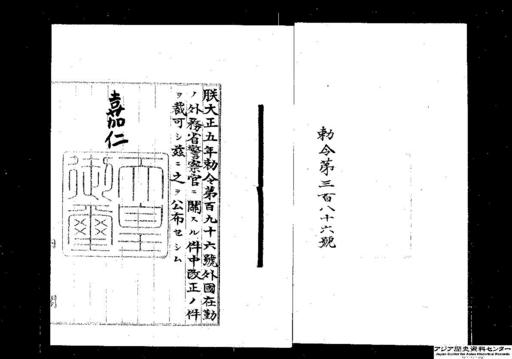 勅令第三百八十六號
朕大正五年勅令第百九十六號外國在勤
ノ外務省警察官ニ關スル件中改正ノ件
ヲ裁可シ茲ニ之ヲ公布セシム
嘉仁
天皇御璽
アジア歴史資料センター
Japan Center for Asian Historical Records